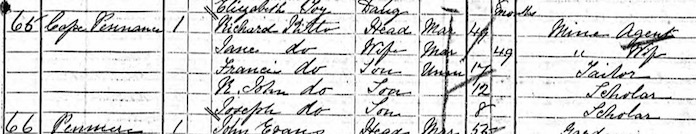 Elizabeth Ivy Daug 8 months
65 Cape Pennance 1 Richard Kitto Head Mar 49 Mine Agent
Jane do Wife Mar 49 " Wife
Francis do Son Unm 17 Tailor
R. John do Son 12 Scholar
Joseph do Son 8 Scholar
66 1 John Evans Head Mar 52